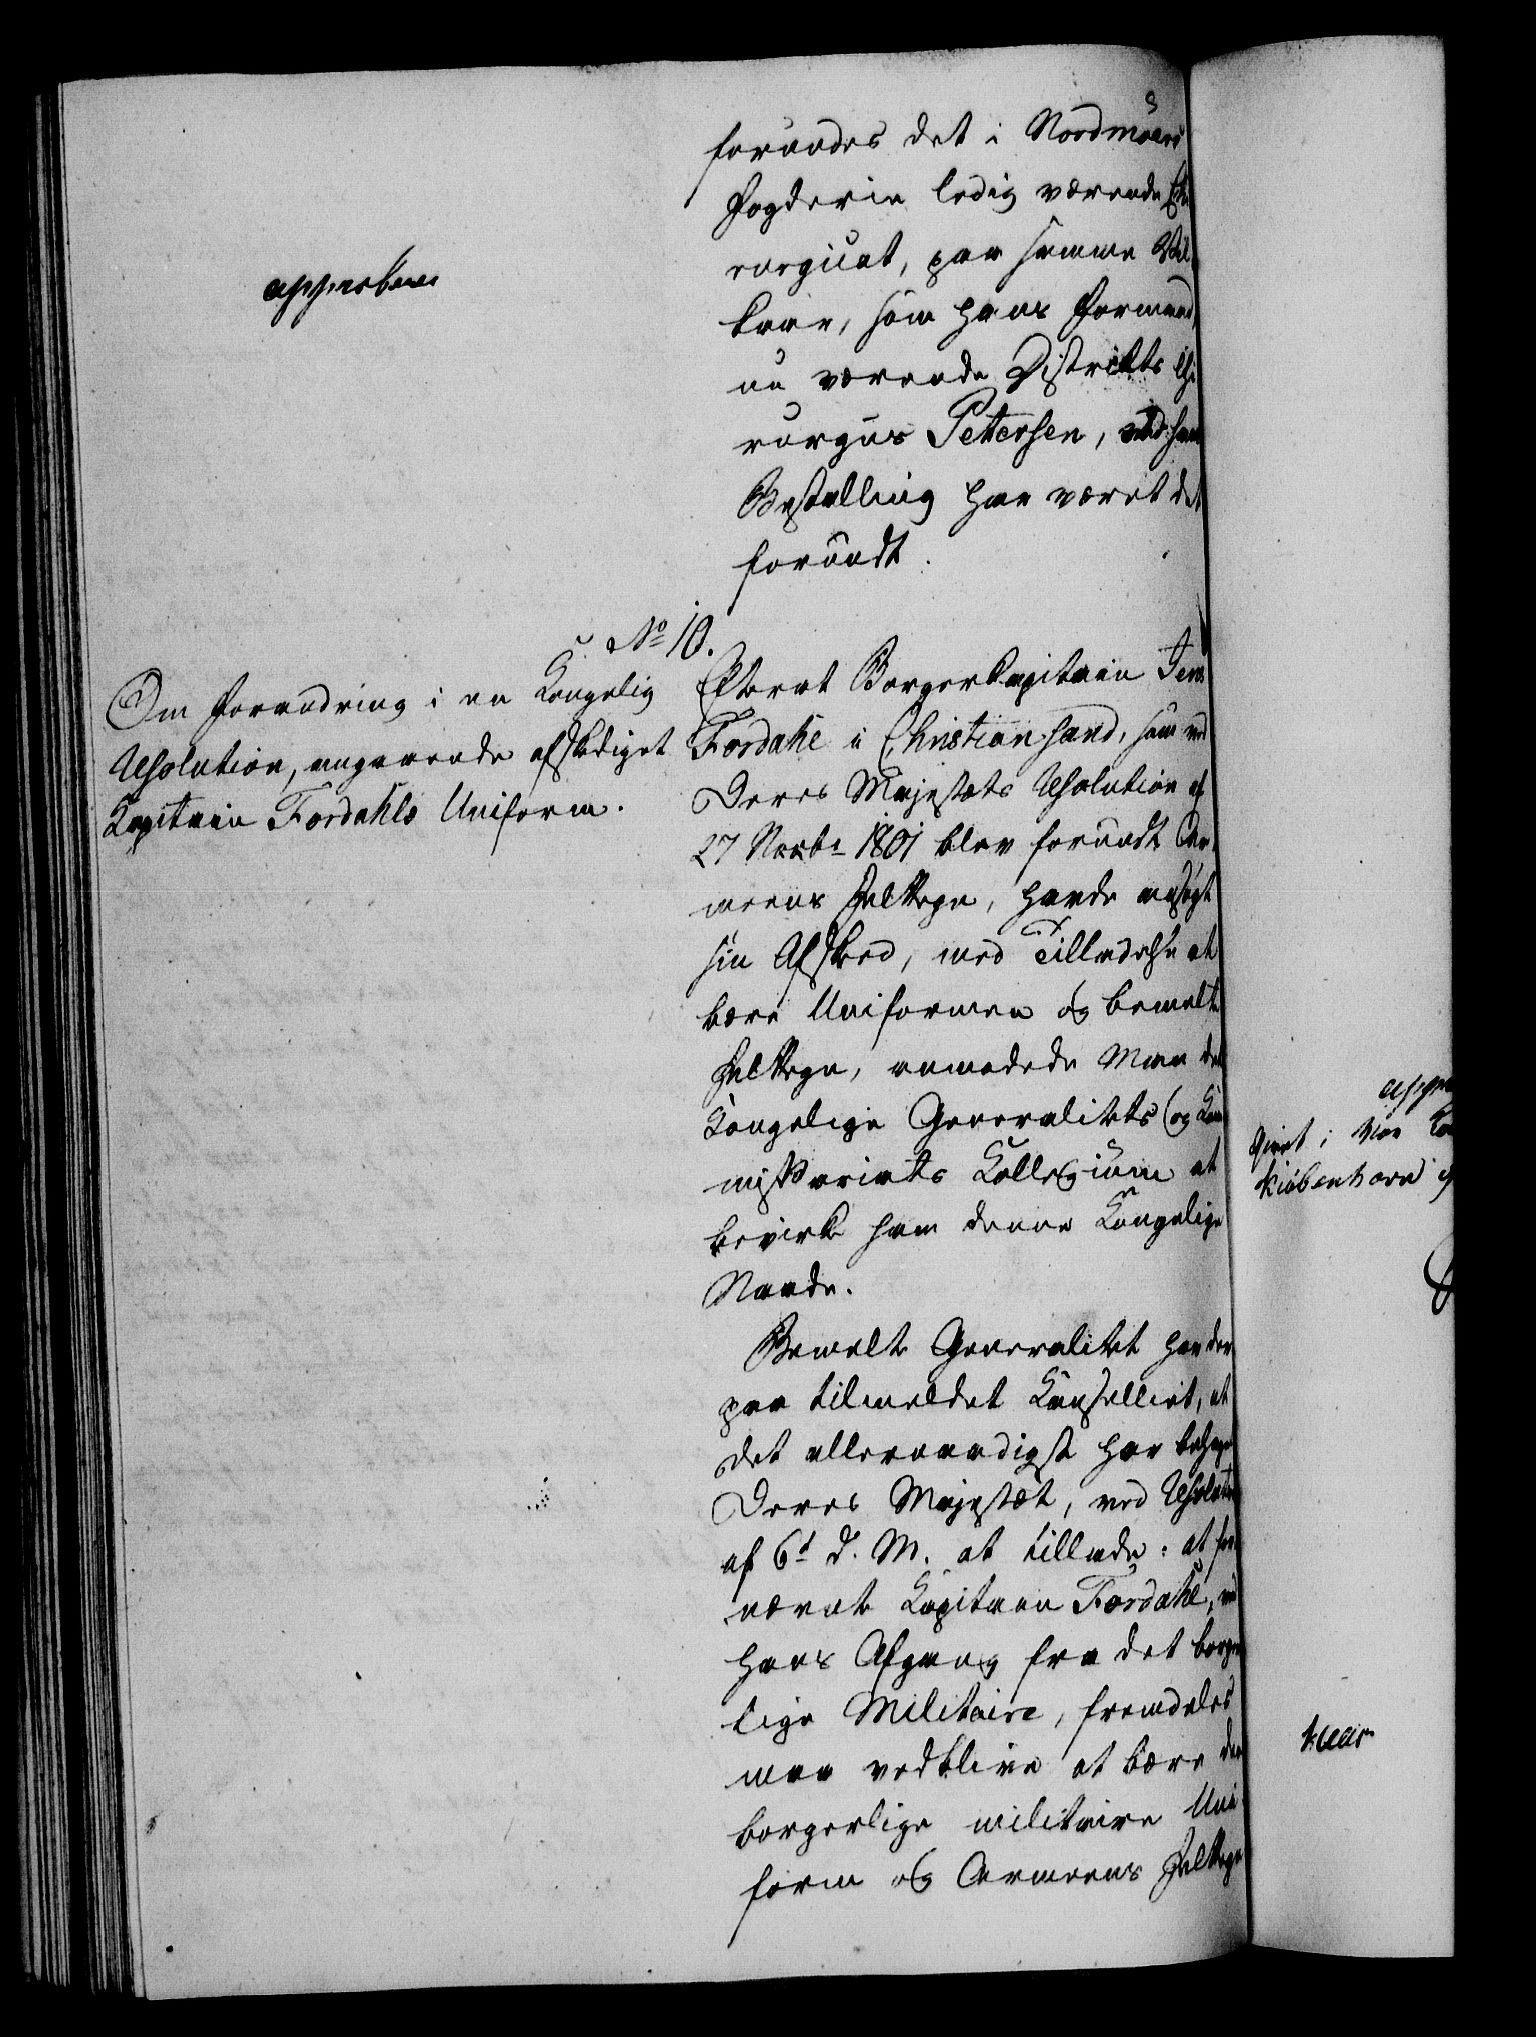 forundes det i Nordmøers
Fogderie ledig værende Chi
rurgicat, paa samme Vil
kaar, som hans Formand,
nu værende Distrikts Chi
rurgus Petersen, ved hans
Bestalling har været det
forundt.
approberes
No 10.
Om Forandring i en Kongelig
Resolution, angaaende afskediget
Kapitain Fordahls Uniform.
Efterat Borgerkapitain Jens
Fordahl i Christiansand, som ved
Deres Majestæts Resolution af
27 Novbr 1801 blev forundt Ar
meens Feltegn, havde ansøgt
sin Afsked, med Tilladelse at
bære Uniformen og bemelte
Feltegn, anmodede Man det
Kongelige Generalitets og Kom
missariats Kollegium at
bevirke ham denne Kongelige
Naade.
Bemelte Generalitet har der
paa tilmeldet Kanselliet, at
det allernaadigst har behaget
Deres Majestæt, ved Resolution
af 6d d. M. at tillade: at for
nævnte Kapitain Fordahl, ved
hans Afgang fra det borger
lige Militaire, fremdeles
maa vedblive at bære den
borgerlige militaire Uni
form og Armeens Feltegn
appro
Givet i Vor Ko
Kiøbenhavn